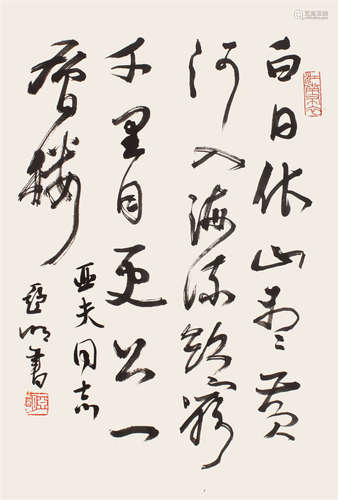 白日依山尽黄
河入海流欲穷
千里目更上一
层楼
亚夫同志
亚明书